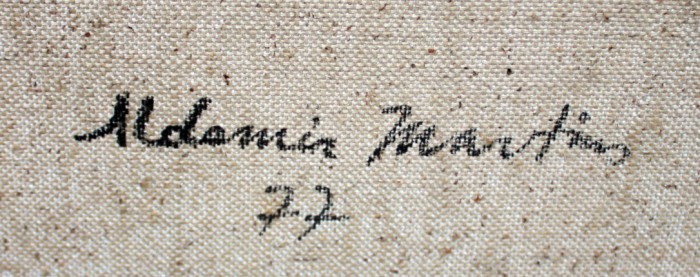 Aldemir Martins
77